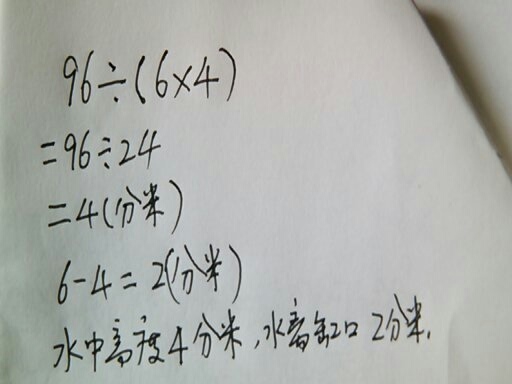 96÷(6×4)
=96÷24
=4(分米)
6-4=2(分米)
水中高度4分米,水离缸口2分米.